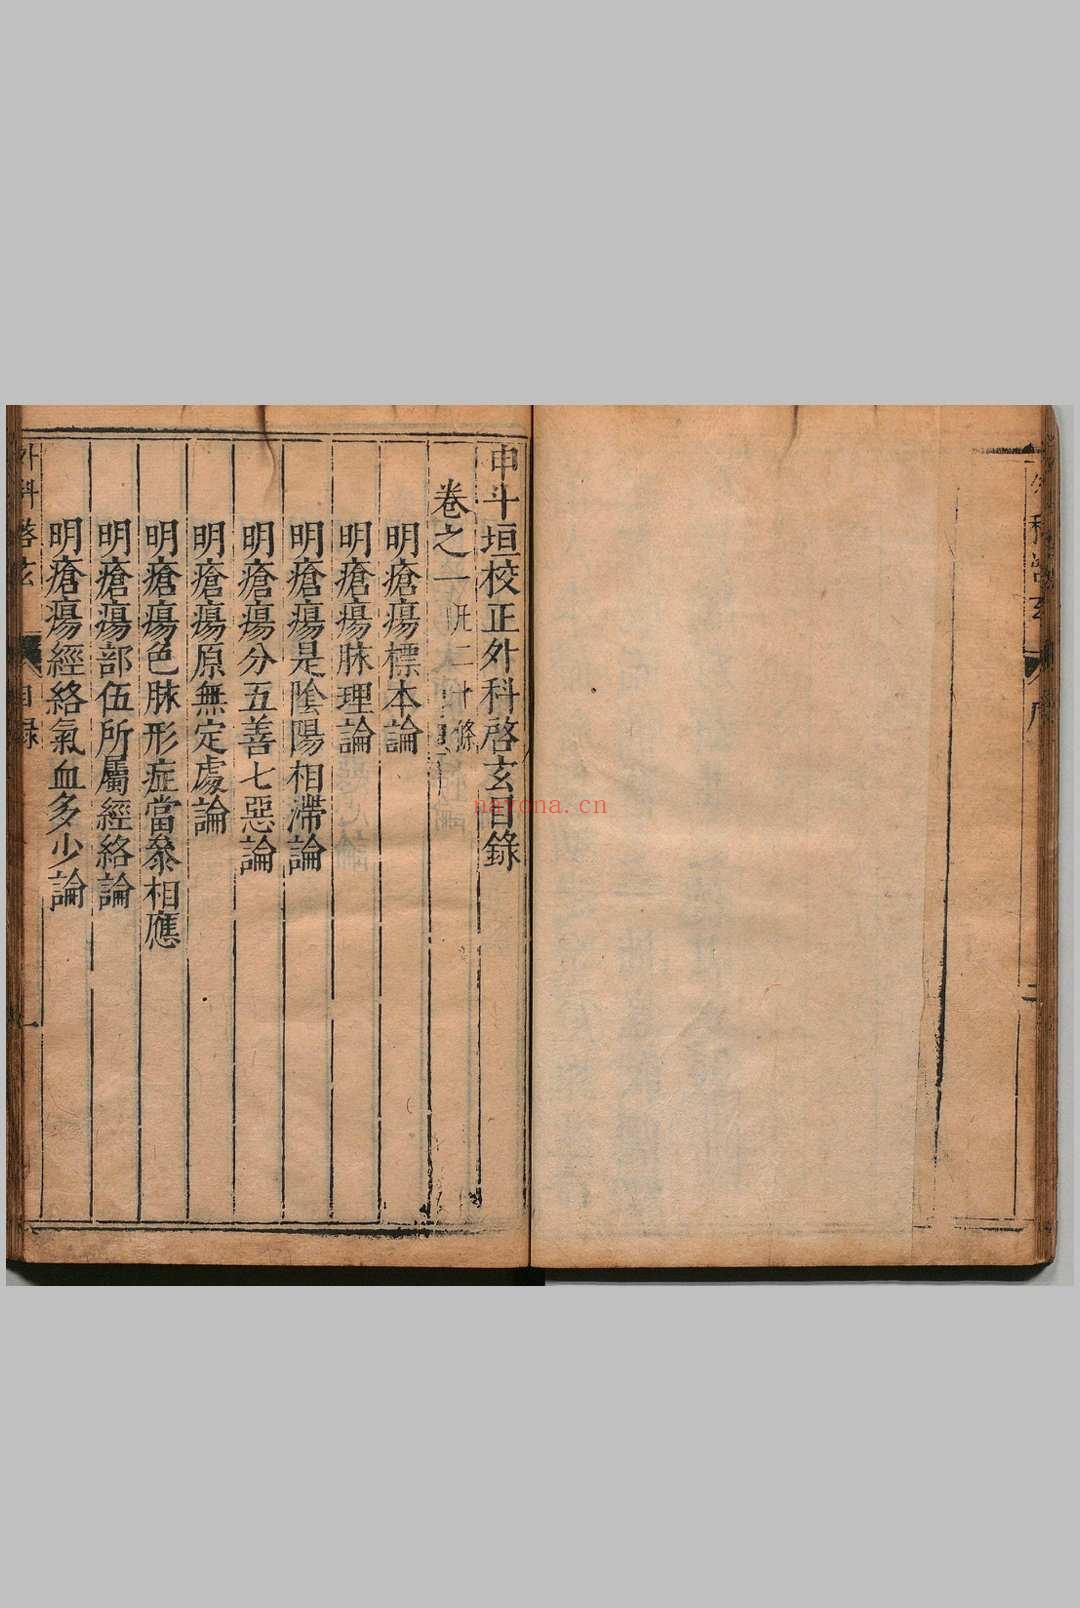 申斗垣校正外科啓玄目錄
卷之一
明瘡瘍標本論
明瘡瘍脉理論
明瘡瘍是陰陽相滯論
明瘡瘍分五善七惡論
明瘡瘍原無定處論
明瘡瘍色脉形症當叅相應
明瘡瘍部伍所屬經絡論
明瘡瘍經絡氣血多少論
外科啓玄
目録
一
nayona.cn